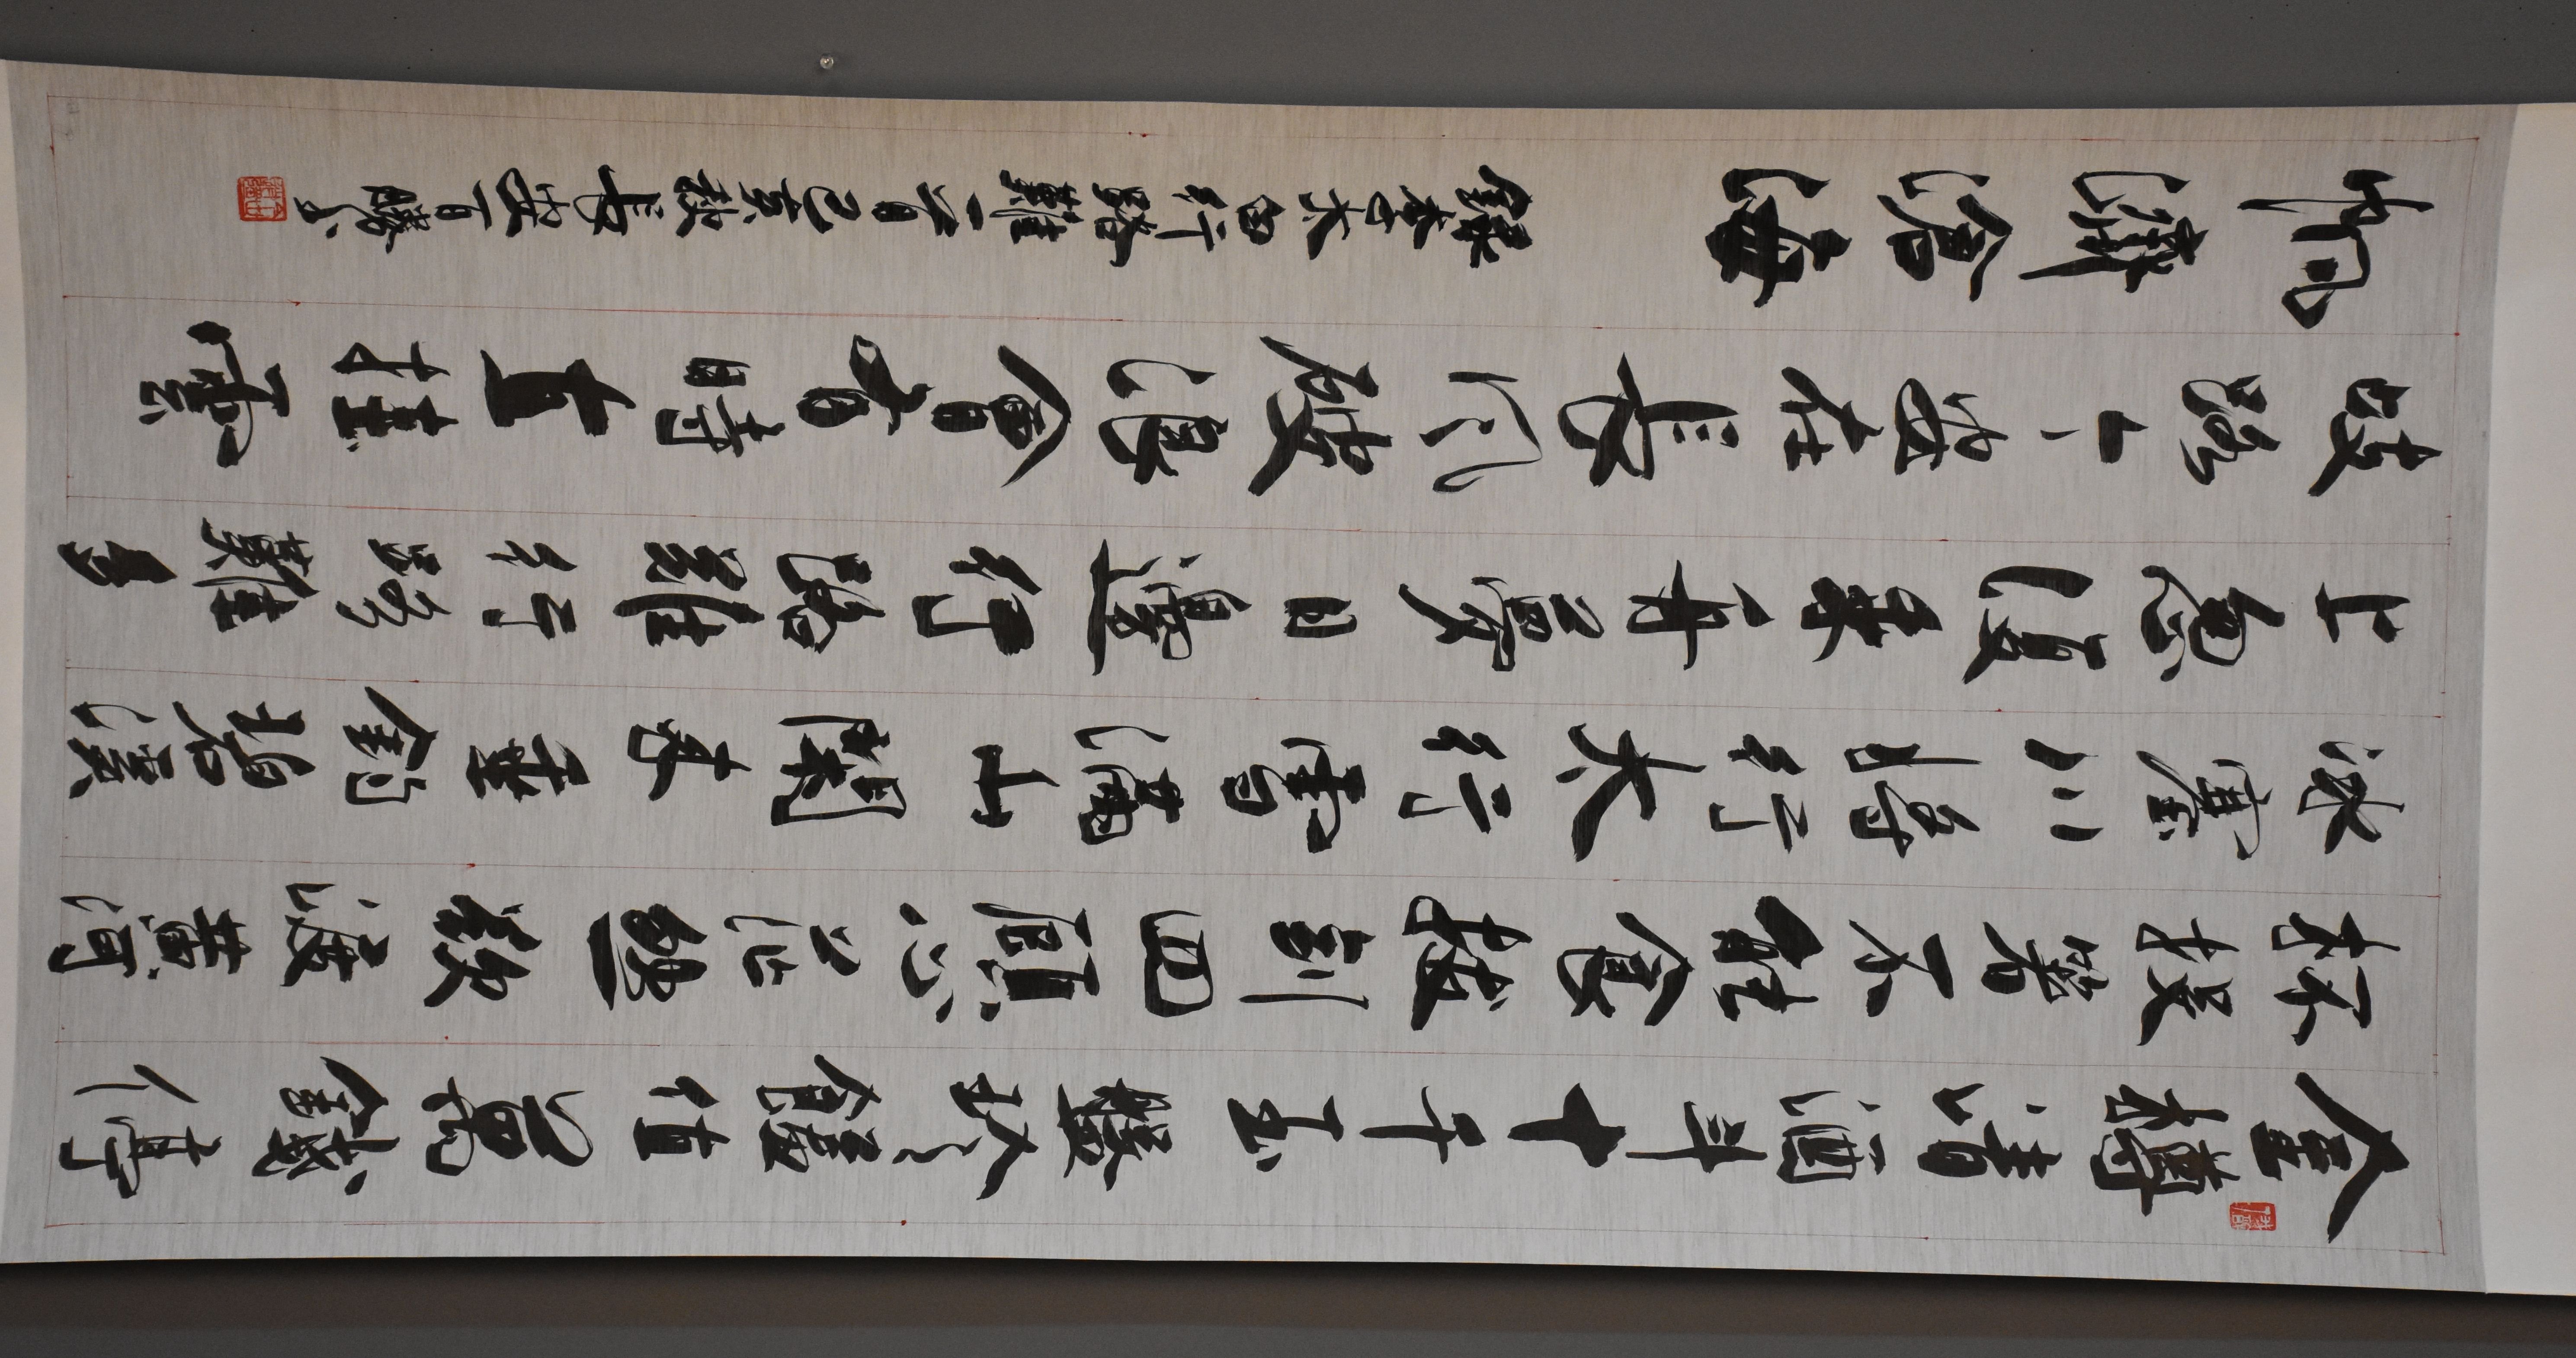 金樽清酒斗十千玉盤珍饈值萬錢停
杯投箸不能食拔劍四顧心茫然欲渡黃河
冰塞川將行太行雪滿山閑來垂釣碧溪
上忽復乘舟夢日邊行路難行路難多
歧路今安在長風破浪會有時直掛雲
帆濟滄海
錄李太白行路難一首己亥秋長安百